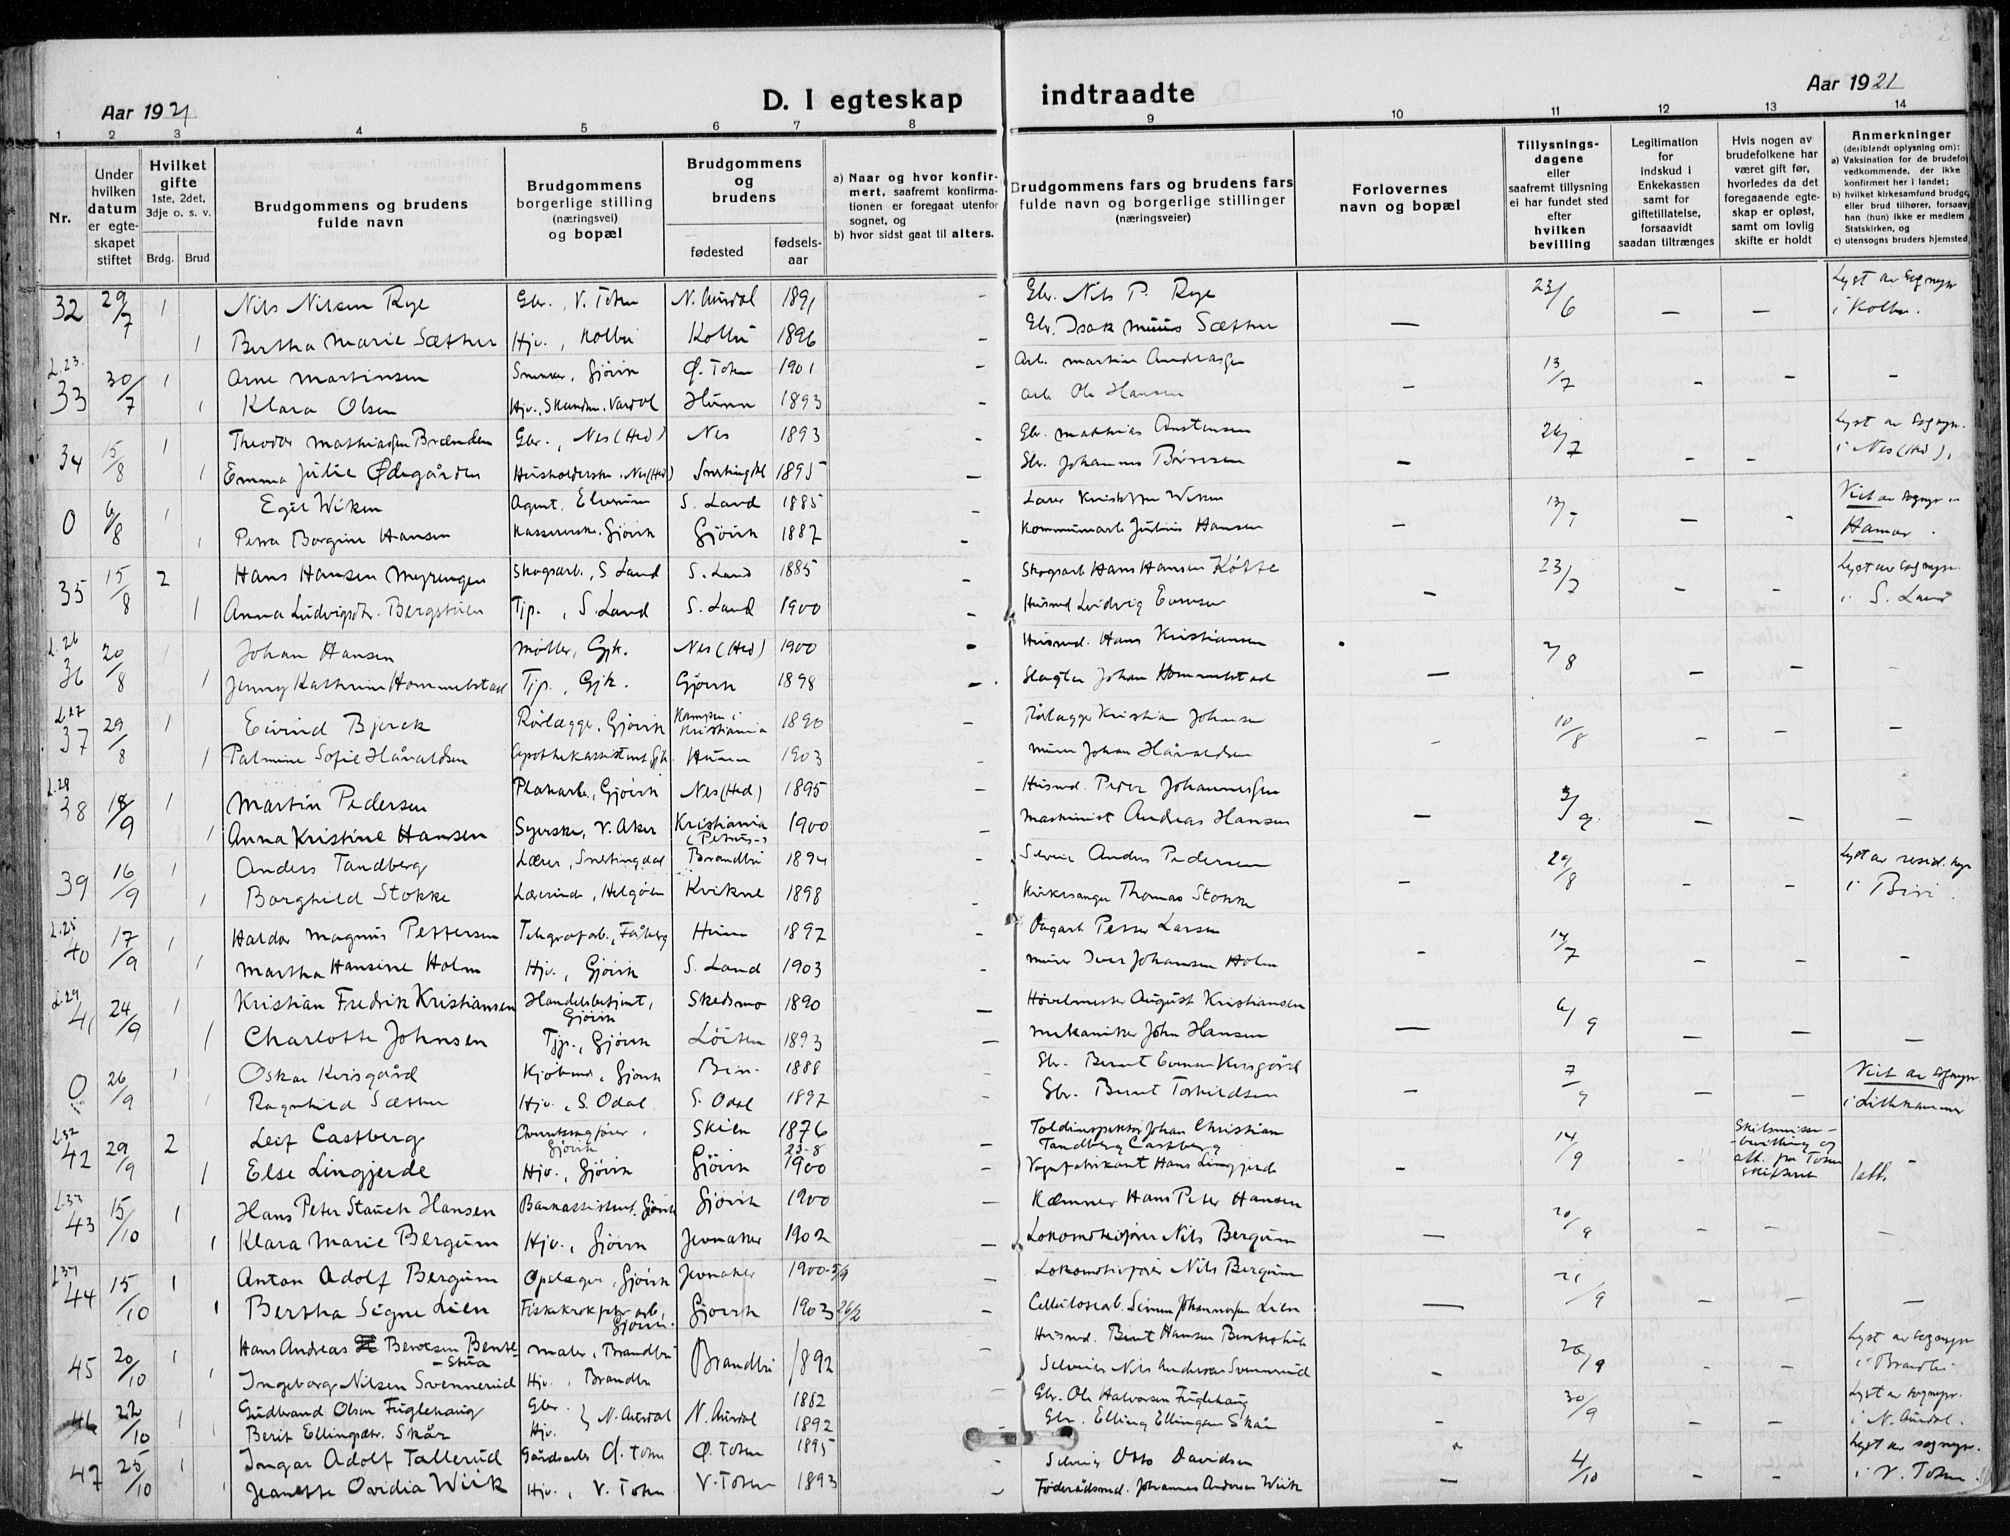 Aar 1921
D. I egteskap indtraadte
Aar 1921
1 2 3 4 5 6 7 8 9 10 11 12 13 14
Nr.
Under hvilken datum er egteskapet stiftet
Hvilket gifte 1ste, 2det, 3dje o. s. v.
Brdg. Brud
Brudgommens og brudens fulde navn
Brudgommens borgerlige stilling (næringsvei) og bopæl
Brudgommens og brudens
fødested
fødsels-aar
a) Naar og hvor konfirmert, saafremt konfirmationen er foregaat utenfor sognet, og
b) hvor sidst gaat til alters.
Brudgommens fars og brudens fars fulde navn og borgerlige stillinger (næringsveier)
Forlovernes navn og bopæl
Tillysningsdagene eller saafremt tillysning ei har fundet sted efter hvilken bevilling
Legitimation for indskud i Enkekassen samt for giftetillatelse, forsaavidt saadan tiltrænges
Hvis nogen av brudefolkene har været gift før, hvorledes da det foregaaende egteskap er opløst, samt om lovlig skifte er holdt
Anmerkninger (deriblandt oplysning om):
a) Vaksination for de brudefo vedkommende, der ikke konfirmert her i landet;
b) hvilket kirkesamfund brudgo. eller brud tilhører, forsaav. han (hun) ikke er medlem Statskirken, og
c) utensogns bruders hjemsted
32 29/7 1 Nils Nilsen Rye Gbr., V. Toten N. Aurdal 1891 - Gbr. Nils P. Rye 23/6 Lyst av sognepr.
1 Bertha Marie Sæther Hjv., Kolbu Kolbu 1896 - Gbr. Isak Muus Sæther — — — i Kolbu.
L.23.
33 30/7 1 Arne Martinsen Snekker, Gjøvik Ø. Toten 1901 Arb. Martin Andreasen 13/7
1 Klara Olsen Hjv., Vardal Hunn 1893 - Arb. Ole Hansen — — — —
34 15/8 1 Theodor Mathiassen Brænden Gbr., Nes (Hed) Nes 1893 - Gbr. Mathias Austensen 26/7 Lyst av sognepr.
1 Emma Julie Ødegården Husholderske, Nes (Hed) Snertingdal 1895 — Gbr. Johannes Børresen — — — i Nes (Hed).
0 6/8 1 Egil Wiken Agent, Elverum S. Land 1885 Lærer Kristoffer Wiken 13/7 Viet av sognepr. i
1 Petra Borgine Hansen Kassererske, Gjøvik Gjøvik 1887 - Kommunearb. Julius Hansen — — - Hamar.
35 15/8 2 Hans Hansen Myrengen Skogsarb., S. Land S. Land 1885 - Skogsarb. Hans Hansen Køtte 23/7 Lyst av sognepr.
1 Anna Ludvigsdtr. Bergstuen Tjp., S. Land S. Land 1900 - Husmd. Ludvig Evensen — — — i S. Land
L.26
36 20/8 1 Johan Hansen Møller, Gjk. Nes (Hed) 1900 - Husmd. Hans Kristiansen 2/8
1 Jenny Kathrine Hommelstad Tjp., Gjk. Gjøvik 1898 — Slagter Johan Hommelstad — — — -
L.27
37 29/8 1 Eivind Bjerck Rørlægger, Gjøvik Kampen i Kristiania 1890 - Rørlægger Kristian Johnsen 10/8
1 Palmine Sofie Håvaldsen Apothekassistent Gjk. Hunn 1903 Murer Johan Håvaldsen - — — —
L.28
38 18/9 1 Martin Pedersen Plankarb., Gjøvik Nes (Hed) 1895 Husmd. Peder Johannessen 3/9
1 Anna Kristine Hansen Syerske, V. Aker Kristiania (Petrus-) 1900 Maskinist Andreas Hansen — — — —
39 16/9 1 Anders Tandberg Lærer, Snertingdal Brandbu 1894 - Selveier Anders Pedersen 29/8 Lyst av resid. kap.
1 Borghild Stokke Lærerinde, Helgøen Kvikne 1898 - Kirkesanger Thomas Stokke — — — i Biri.
L.25
40 17/9 1 Haldor Magnus Pettersen Telegrafarb., Fåberg Hunn 1892 Dagarb. Petter Larsen 14/7
1 Martha Hansine Holm Hjv., Gjøvik S. Land 1903 - Murer Iver Johansen Holm — — — —
L.29
41 24/9 1 Kristian Fredrik Kristiansen Handelsbetjent, Gjøvik Skedsmo 1890 Høvelmester August Kristiansen 6/9
1 Charlotte Johnsen Tjp., Gjøvik Løiten 1893 — Mekaniker John Hansen — — — —
0 26/9 1 Oskar Kvisgård Kjøbmd., Gjøvik Biri 1888 Gbr. Bernt Evensen Kvisgård 7/9 Viet av sognepr.
Ragnhild Sæther Hjv., S. Odal S. Odal 1897 Gbr. Bernt Torkildsen — — — i Lillehammer
L.32
42 29/9 2 Leif Castberg Gjøvik Skien 1876 Toldinspektør Johan Christian Tandberg Castberg 14/9 Skilsmisse-bevilling og att. fra Toten skifteret
1 Else Lingjerde Hjv., Gjøvik Gjøvik 23-8 1900 Vognfabrikant Hans Lingjerde — - - 1 att.
L.33
43 15/10 1 Hans Peter Stauch Hansen Bankassistent, Gjøvik Gjøvik 1900 Kæmner Hans Peter Hansen 20/9
1 Klara Marie Bergum Hjv., Gjøvik Jevnaker 1902 — Lokomotivfører Nils Bergum — — — —
L.34
44 15/10 1 Anton Adolf Bergum Opslager, Gjøvik Jevnaker 1900-5/9 Lokomotivfører Nils Bergum 21/9
1 Bertha Signe Lien Fiskekrokfabr. arb., Gjøvik. Gjøvik 1903 26/2 — Cellulosearb. Simen Johannessen Lien — — — —
45 20/10 1 Hans Andreas Berntsen Bente-stua Maler, Brandbu Brandbu 1892 Husmd. Bernt Hansen Bentestua 26/9 Lyst av sognepr.
1 Ingeborg Nilsen Svennerud Hjv., Brandbu Selveier Nils Andersen Svennerud - - - i Brandbu
46 22/10 1 Gudbrand Olsen Fuglehaug Gbr. } N. Aurdal N. Aurdal 1882 Gbr. Ole Halvorsen Fuglehaug 30/9 Lyst av sognepr.
1 Berit Ellingsdtr. Skår Hjv. 1892 Gbr. Elling Ellingsen Skår - - - i N. Aurdal.
47 25/10 1 Ingar Adolf Tallerud Gårdsarb. Ø. Toten Ø. Toten 1895 Selveier Otto Davidsen 4/10 Lyst av sognepr.
1 Jeanette Ovidia Wiik Hjv., V. Toten V. Toten 1893 — Føderådsmd. Johannes Andersen Wiik — — — i V. Toten.